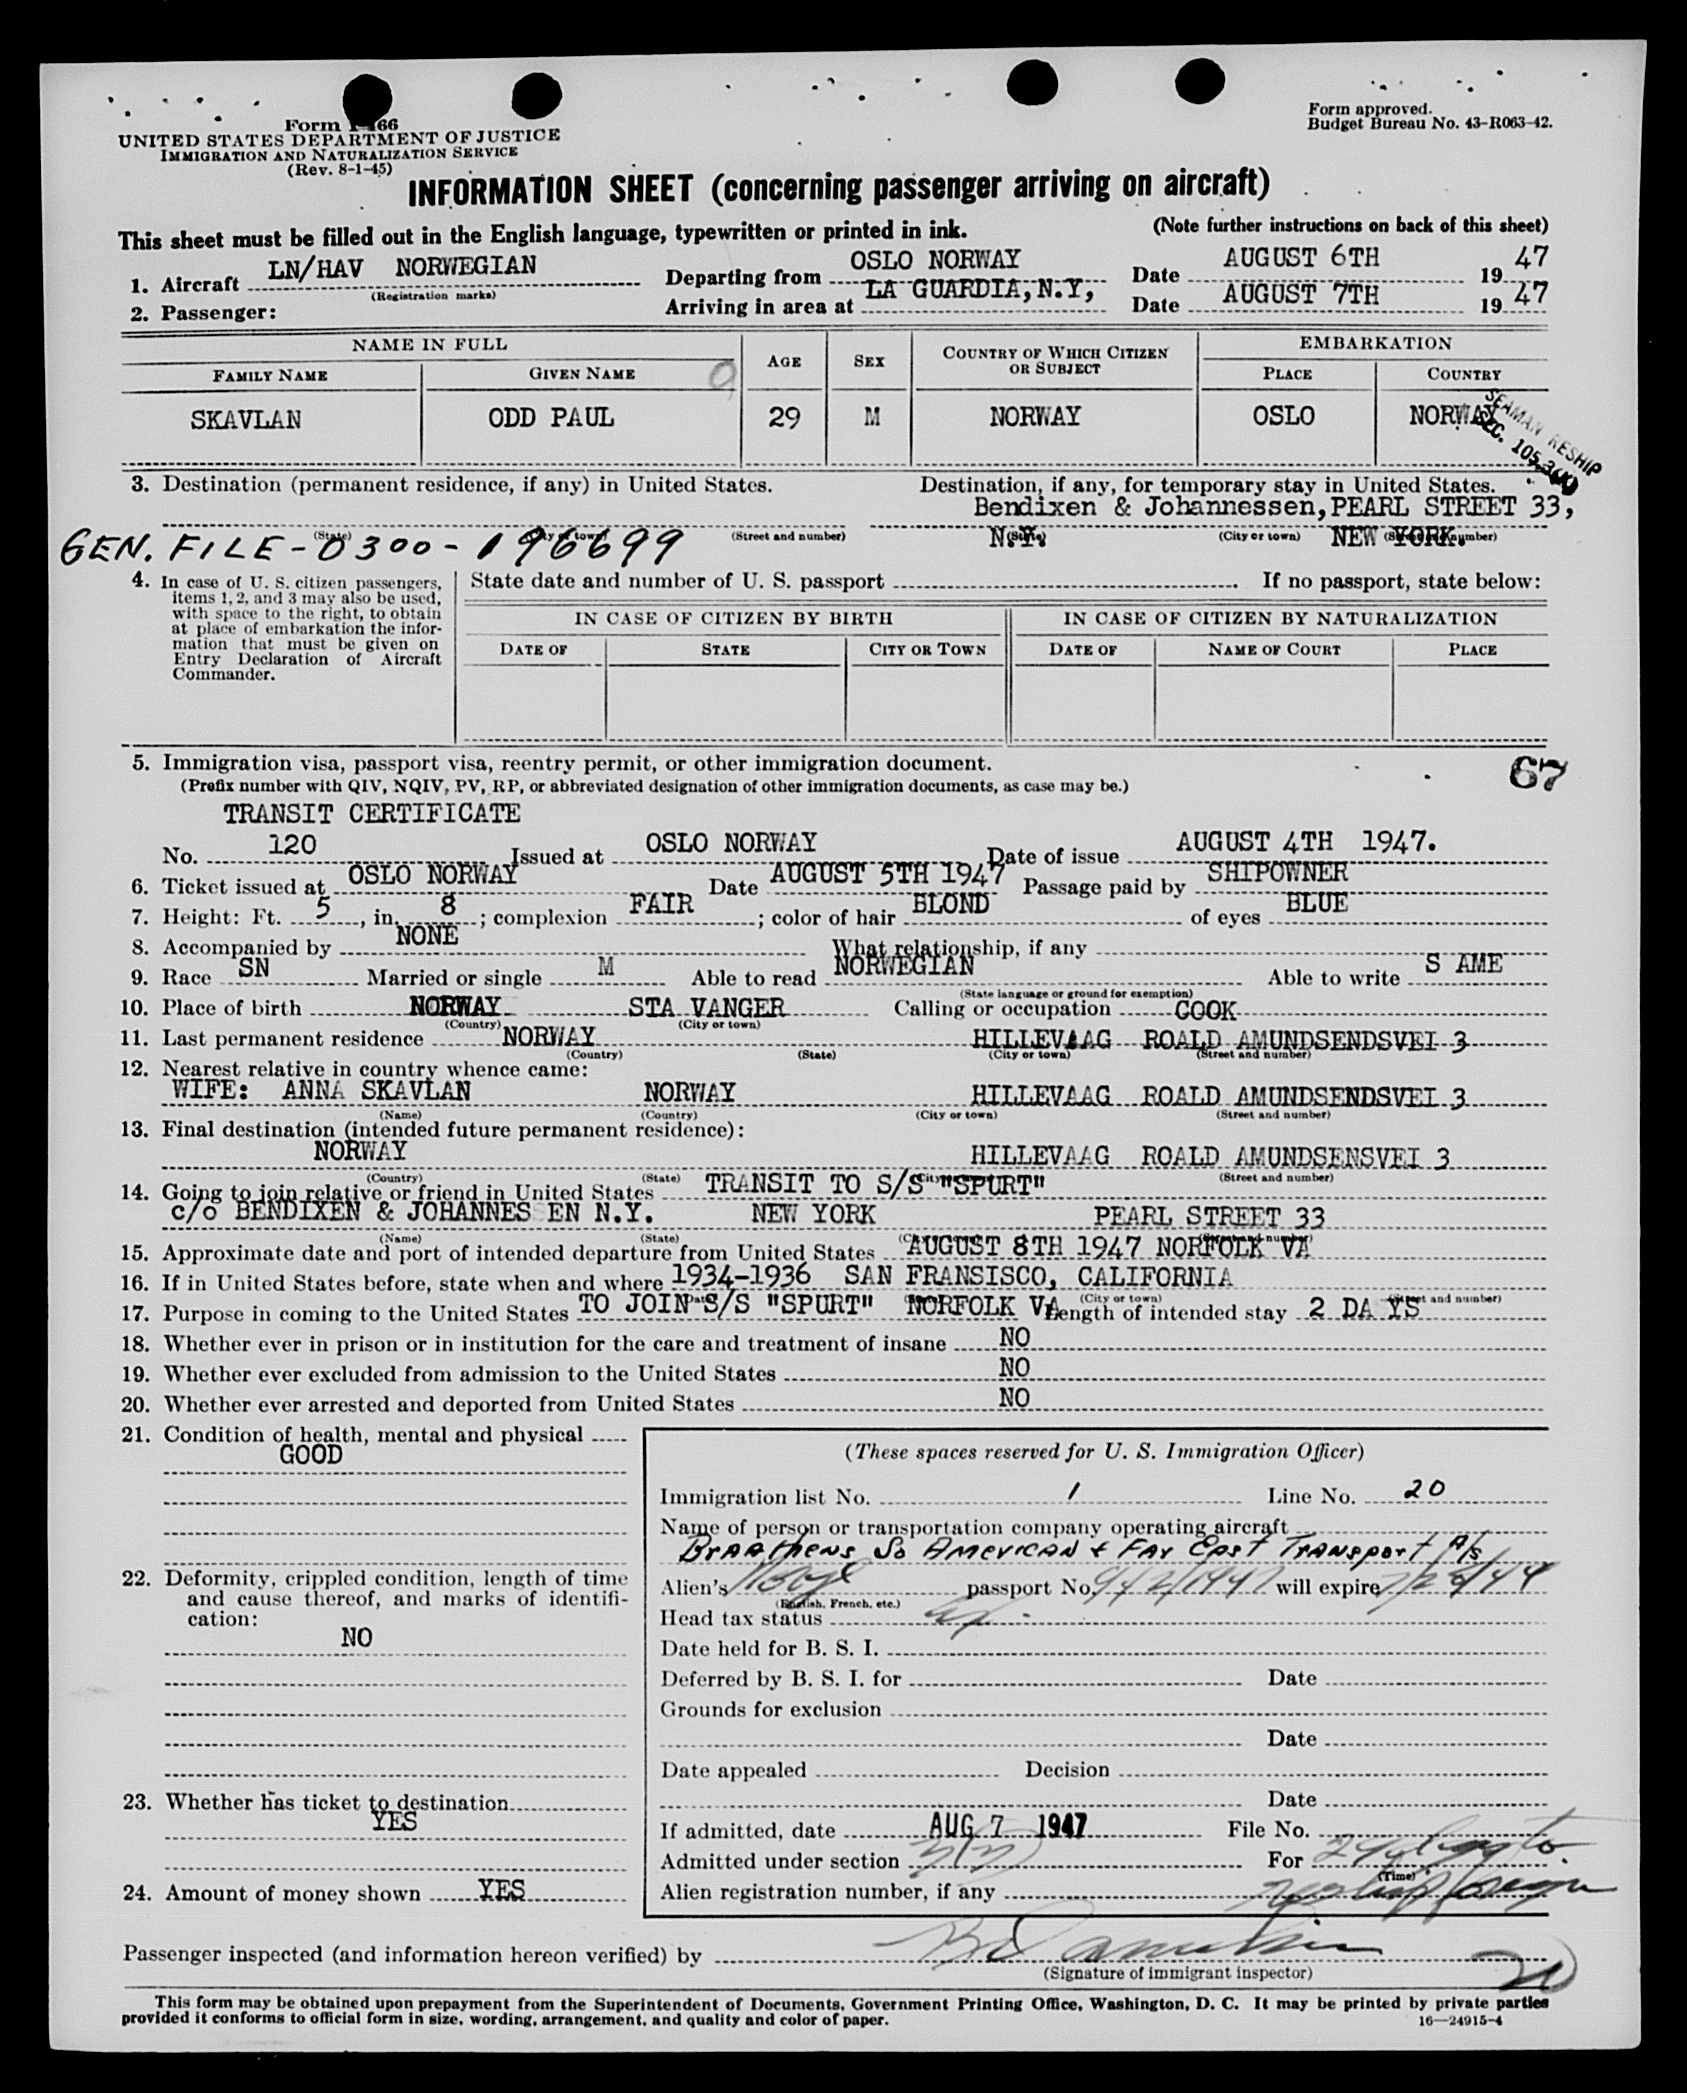 Form approved.
Budget Bureau No. 43-R063-42.
Form I-466
UNITED STATES DEPARTMENT OF JUSTICE
IMMIGRATION AND NATURALIZATION SERVICE
(Rev. 8-1-45)
INFORMATION SHEET (concerning passenger arriving on aircraft)
This sheet must be filled out in the English language, typewritten or printed in ink. (Note further instructions on back of this sheet)
1. Aircraft LN/HAV NORWEGIAN Departing from OSLO NORWAY Date AUGUST 6TH 1947
(Registration marks)
2. Passenger: Arriving in area at LA GUARDIA, N.Y, Date AUGUST 7TH 1947
NAME IN FULL AGE SEX COUNTRY OF WHICH CITIZEN OR SUBJECT EMBARKATION
FAMILY NAME GIVEN NAME PLACE COUNTRY
SKAVLAN ODD PAUL 29 M NORWAY OSLO NORWAY
SEAMAN RESHIP
SEC. 105.3
3. Destination (permanent residence, if any) in United States. Destination, if any, for temporary stay in United States.
Bendixen & Johannessen, PEARL STREET 33,
(State) (City or town) (Street and number) N.Y. (State) (City or town) NEW YORK. (Street and number)
GEN. FILE - 0300 - 196699
4. In case of U. S. citizen passengers, items 1, 2, and 3 may also be used, with space to the right, to obtain at place of embarkation the information that must be given on Entry Declaration of Aircraft Commander.
State date and number of U. S. passport If no passport, state below:
IN CASE OF CITIZEN BY BIRTH IN CASE OF CITIZEN BY NATURALIZATION
DATE OF STATE CITY OR TOWN DATE OF NAME OF COURT PLACE
5. Immigration visa, passport visa, reentry permit, or other immigration document. 67
(Prefix number with QIV, NQIV, PV, RP, or abbreviated designation of other immigration documents, as case may be.)
TRANSIT CERTIFICATE
No. 120 Issued at OSLO NORWAY Date of issue AUGUST 4TH 1947.
6. Ticket issued at OSLO NORWAY Date AUGUST 5TH 1947 Passage paid by SHIPOWNER
7. Height: Ft. 5, in. 8; complexion FAIR; color of hair BLOND of eyes BLUE
8. Accompanied by NONE What relationship, if any
9. Race SN Married or single M Able to read NORWEGIAN Able to write S AME
(State language or ground for exemption)
10. Place of birth NORWAY STA VANGER Calling or occupation COOK
(Country) (City or town)
11. Last permanent residence NORWAY HILLEVAAG ROALD AMUNDSENDSVEI 3
(Country) (State) (City or town) (Street and number)
12. Nearest relative in country whence came:
WIFE: ANNA SKAVLAN NORWAY HILLEVAAG ROALD AMUNDSENDSVEI 3
(Name) (Country) (City or town) (Street and number)
13. Final destination (intended future permanent residence):
NORWAY HILLEVAAG ROALD AMUNDSENSVEI 3
(Country) (State) (City (Street and number)
14. Going to join relative or friend in United States TRANSIT TO S/S "SPURT"
c/o BENDIXEN & JOHANNES EN N.Y. NEW YORK PEARL STREET 33
(Name) (State) (Street and number)
15. Approximate date and port of intended departure from United States AUGUST 8TH 1947 NORFOLK VA
16. If in United States before, state when and where 1934-1936 SAN FRANSISCO, CALIFORNIA
(City or town) (Street and number)
17. Purpose in coming to the United States TO JOIN S/S "SPURT" NORFOLK VA Length of intended stay 2 DA YS
18. Whether ever in prison or in institution for the care and treatment of insane NO
19. Whether ever excluded from admission to the United States NO
20. Whether ever arrested and deported from United States NO
21. Condition of health, mental and physical
GOOD
22. Deformity, crippled condition, length of time and cause thereof, and marks of identification:
NO
23. Whether has ticket to destination
YES
24. Amount of money shown YES
(These spaces reserved for U. S. Immigration Officer)
Immigration list No. 1 Line No. 20
Name of person or transportation company operating aircraft
Braathens So American & Far East Transport A/S
Alien's passport No. will expire
(English, French, etc.)
Head tax status
Date held for B. S. I.
Deferred by B. S. I. for Date
Grounds for exclusion
Date
Date appealed Decision
Date
If admitted, date AUG 7 1947 File No.
Admitted under section 3(5) For
(Time)
Alien registration number, if any
Passenger inspected (and information hereon verified) by
(Signature of immigrant inspector) 20
This form may be obtained upon prepayment from the Superintendent of Documents, Government Printing Office, Washington, D. C. It may be printed by private parties
provided it conforms to official form in size, wording, arrangement, and quality and color of paper. 16—24915-4